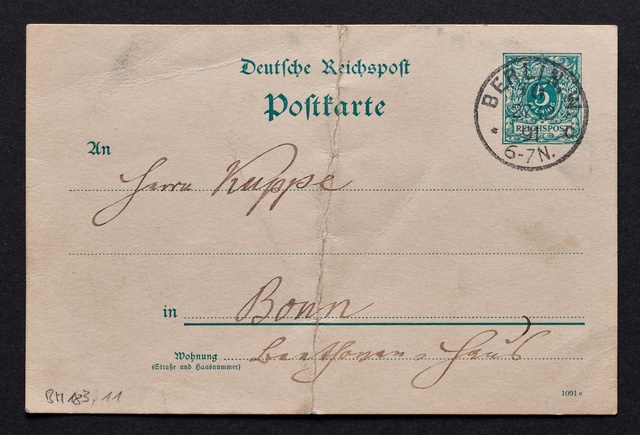 Deutsche Reichspost
Postkarte
BERLIN W
5
REICHSPOST
91
6-7N.
An
Herrn Kuppe
in Bonn
Wohnung Beethovens Haus
(Straße und Hausnummer)
BH 183, 11
1091 e